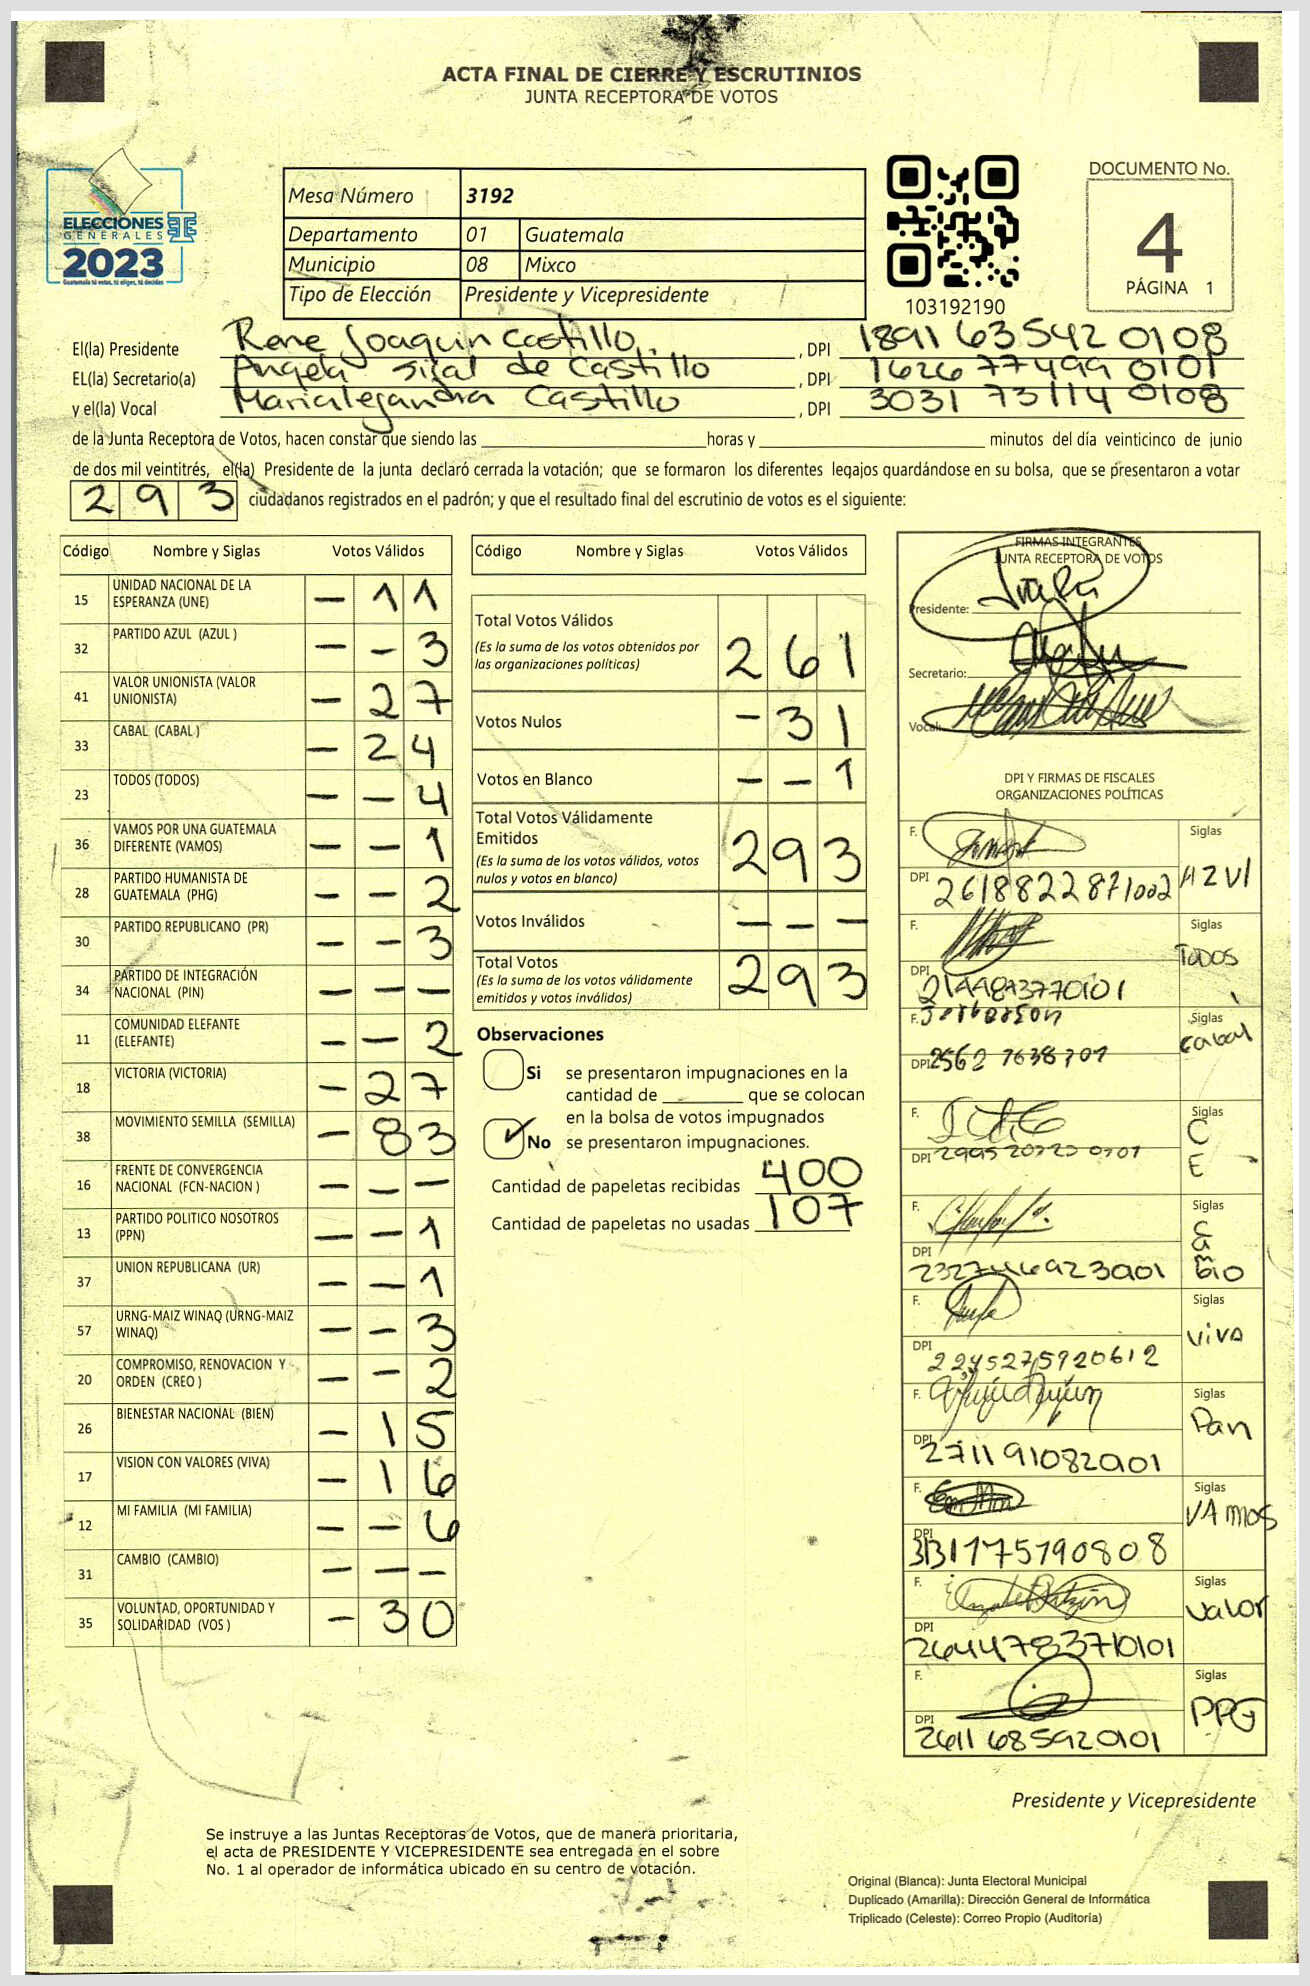 ACTA FINAL DE CIERRE Y ESCRUTINIOS
JUNTA RECEPTORA DE VOTOS
DOCUMENTO No.
4
PÁGINA 1
ELECCIONES
GENERALES
2023
Guatemala tú votas, tú eliges, tú decides
Mesa Número 3192
Departamento 01 Guatemala
Municipio 08 Mixco
Tipo de Elección Presidente y Vicepresidente
103192190
El(la) Presidente Rene Joaquin Castillo , DPI 1891 63542 0108
EL(la) Secretario(a) Angela Sijal de Castillo , DPI 1626 77499 0101
y el(la) Vocal Marialejandra Castillo , DPI 3031 73114 0108
de la Junta Receptora de Votos, hacen constar que siendo las horas y minutos del día veinticinco de junio
de dos mil veintitrés, el(la) Presidente de la junta declaró cerrada la votación; que se formaron los diferentes legajos quardándose en su bolsa, que se presentaron a votar
293 ciudadanos registrados en el padrón; y que el resultado final del escrutinio de votos es el siguiente:
Código Nombre y Siglas Votos Válidos
15 UNIDAD NACIONAL DE LA ESPERANZA (UNE) - 1 1
32 PARTIDO AZUL (AZUL ) - - 3
41 VALOR UNIONISTA (VALOR UNIONISTA) - 2 7
33 CABAL (CABAL ) - 2 4
23 TODOS (TODOS) - - 4
36 VAMOS POR UNA GUATEMALA DIFERENTE (VAMOS) - - 1
28 PARTIDO HUMANISTA DE GUATEMALA (PHG) - - 2
30 PARTIDO REPUBLICANO (PR) - - 3
34 PARTIDO DE INTEGRACIÓN NACIONAL (PIN) - - -
11 COMUNIDAD ELEFANTE (ELEFANTE) - - 2
18 VICTORIA (VICTORIA) - 2 7
38 MOVIMIENTO SEMILLA (SEMILLA) - 8 3
16 FRENTE DE CONVERGENCIA NACIONAL (FCN-NACION ) - - -
13 PARTIDO POLITICO NOSOTROS (PPN) - - 1
37 UNION REPUBLICANA (UR) - - 1
57 URNG-MAIZ WINAQ (URNG-MAIZ WINAQ) - - 3
20 COMPROMISO, RENOVACION Y ORDEN (CREO ) - - 2
26 BIENESTAR NACIONAL (BIEN) - 1 5
17 VISION CON VALORES (VIVA) - 1 6
12 MI FAMILIA (MI FAMILIA) - - 6
31 CAMBIO (CAMBIO) - - -
35 VOLUNTAD, OPORTUNIDAD Y SOLIDARIDAD (VOS ) - 3 0
Código Nombre y Siglas Votos Válidos
Total Votos Válidos 2 6 1
(Es la suma de los votos obtenidos por
las organizaciones políticas)
Votos Nulos - 3 1
Votos en Blanco - - 1
Total Votos Válidamente
Emitidos 2 9 3
(Es la suma de los votos válidos, votos
nulos y votos en blanco)
Votos Inválidos - - -
Total Votos 2 9 3
(Es la suma de los votos válidamente
emitidos y votos inválidos)
Observaciones
Si se presentaron impugnaciones en la
cantidad de que se colocan
en la bolsa de votos impugnados
✓ No se presentaron impugnaciones.
Cantidad de papeletas recibidas 400
Cantidad de papeletas no usadas 107
FIRMAS INTEGRANTES
JUNTA RECEPTORA DE VOTOS
Presidente:
Secretario:
Vocal:
DPI Y FIRMAS DE FISCALES
ORGANIZACIONES POLÍTICAS
F. Siglas
DPI 2618822871002 AZUL
F. Siglas
DPI TODOS
F. Siglas
DPI Cabal
F. Siglas
DPI C E
F. Siglas
DPI Cambio
F. Siglas
DPI 2245275920612 VIVA
F. Siglas
DPI 2711910820101 Pan
F. Siglas
DPI VAMOS
F. Siglas
DPI 2644783710101 Valor
F. Siglas
DPI 2611685920101 PPG
Presidente y Vicepresidente
Se instruye a las Juntas Receptoras de Votos, que de manera prioritaria,
el acta de PRESIDENTE Y VICEPRESIDENTE sea entregada en el sobre
No. 1 al operador de informática ubicado en su centro de votación.
Original (Blanca): Junta Electoral Municipal
Duplicado (Amarilla): Dirección General de Informática
Triplicado (Celeste): Correo Propio (Auditoría)